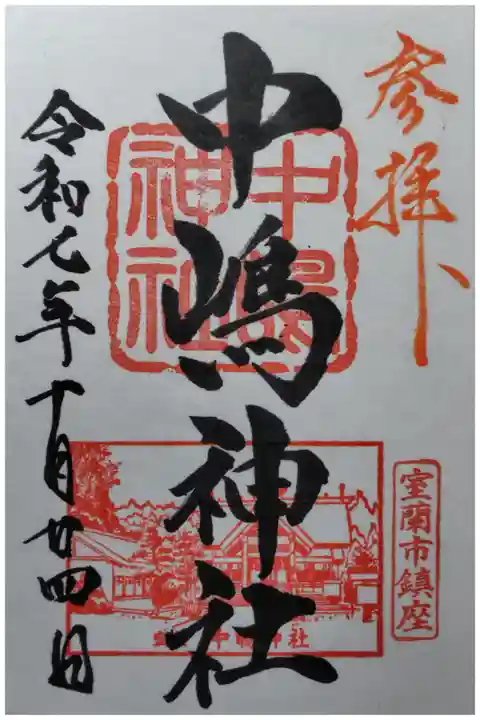 参拝
室蘭市鎮座
中嶋神社
中嶋神社
中嶋神社
令和七年十月廿四日